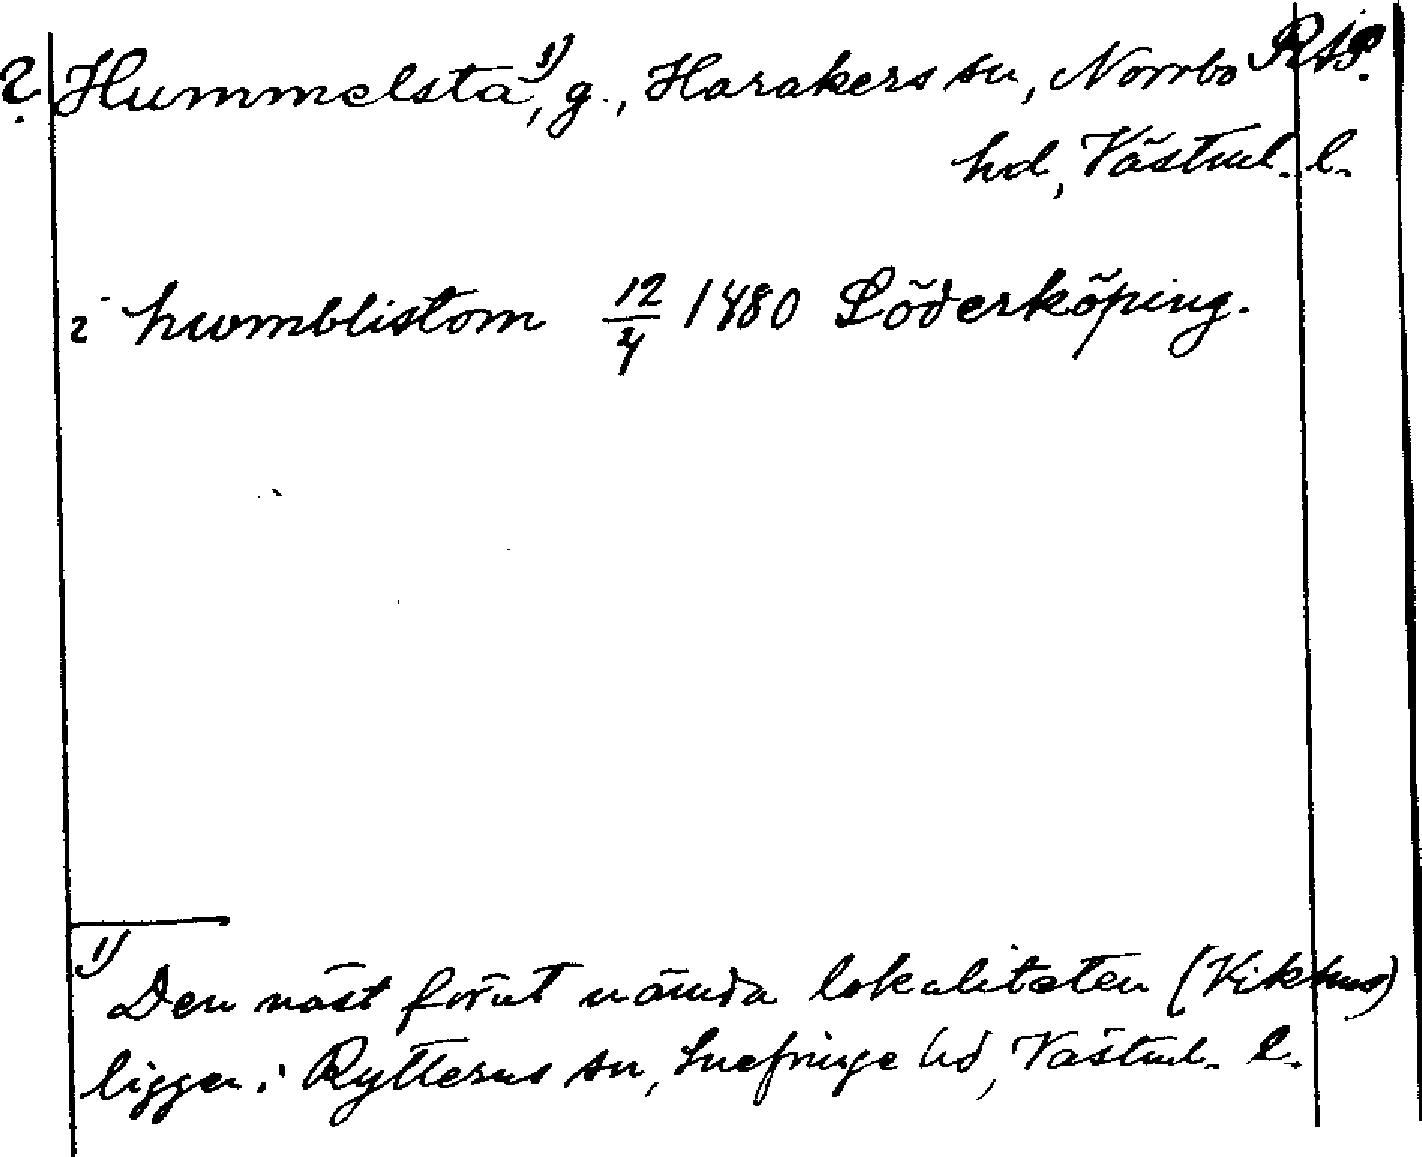 ? Hummelsta¹⁾, g., Harakers sn, Norrbo RAP.
hd, Västml. l.
i humblistom 12/4 1480 Söderköping.
¹⁾ Den näst förut nämda lokaliteten (Vikhus)
ligger i Rytterns sn, Snefringe hd, Västml. l.